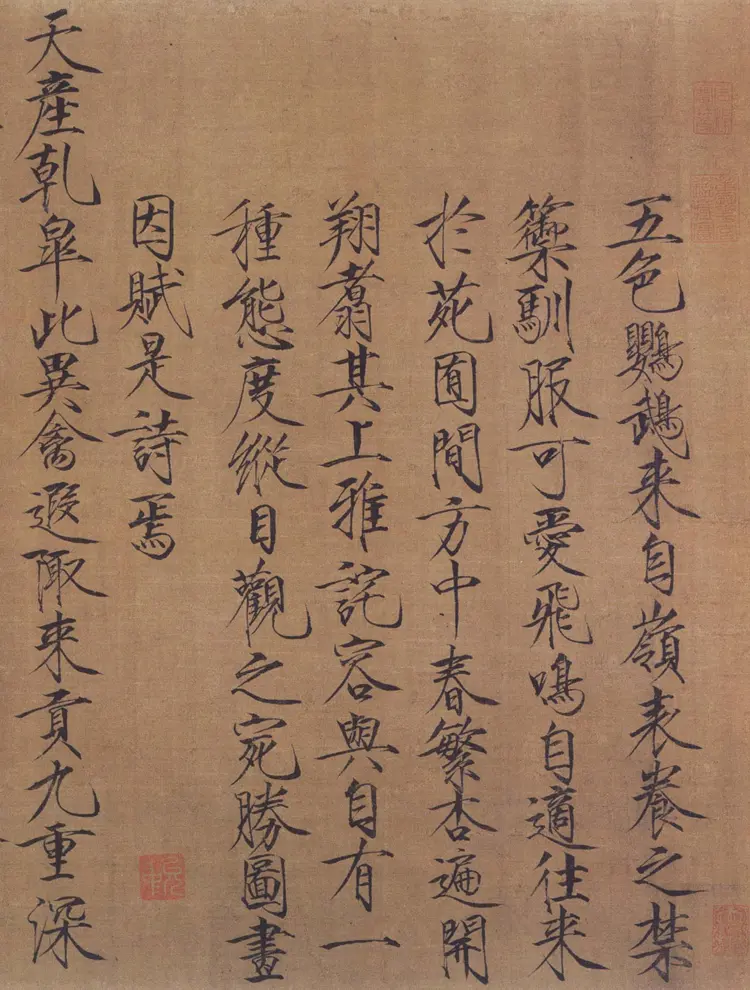 五色鸚鵡来自嶺表養之禁
籞馴服可愛飛鳴自適往来
於苑囿間方中春繁杏遍開
翔翥其上雅詫容與自有一
種態度縱目觀之宛勝圖畫
因賦是詩焉
天產乹皐此異禽遐陬来貢九重深